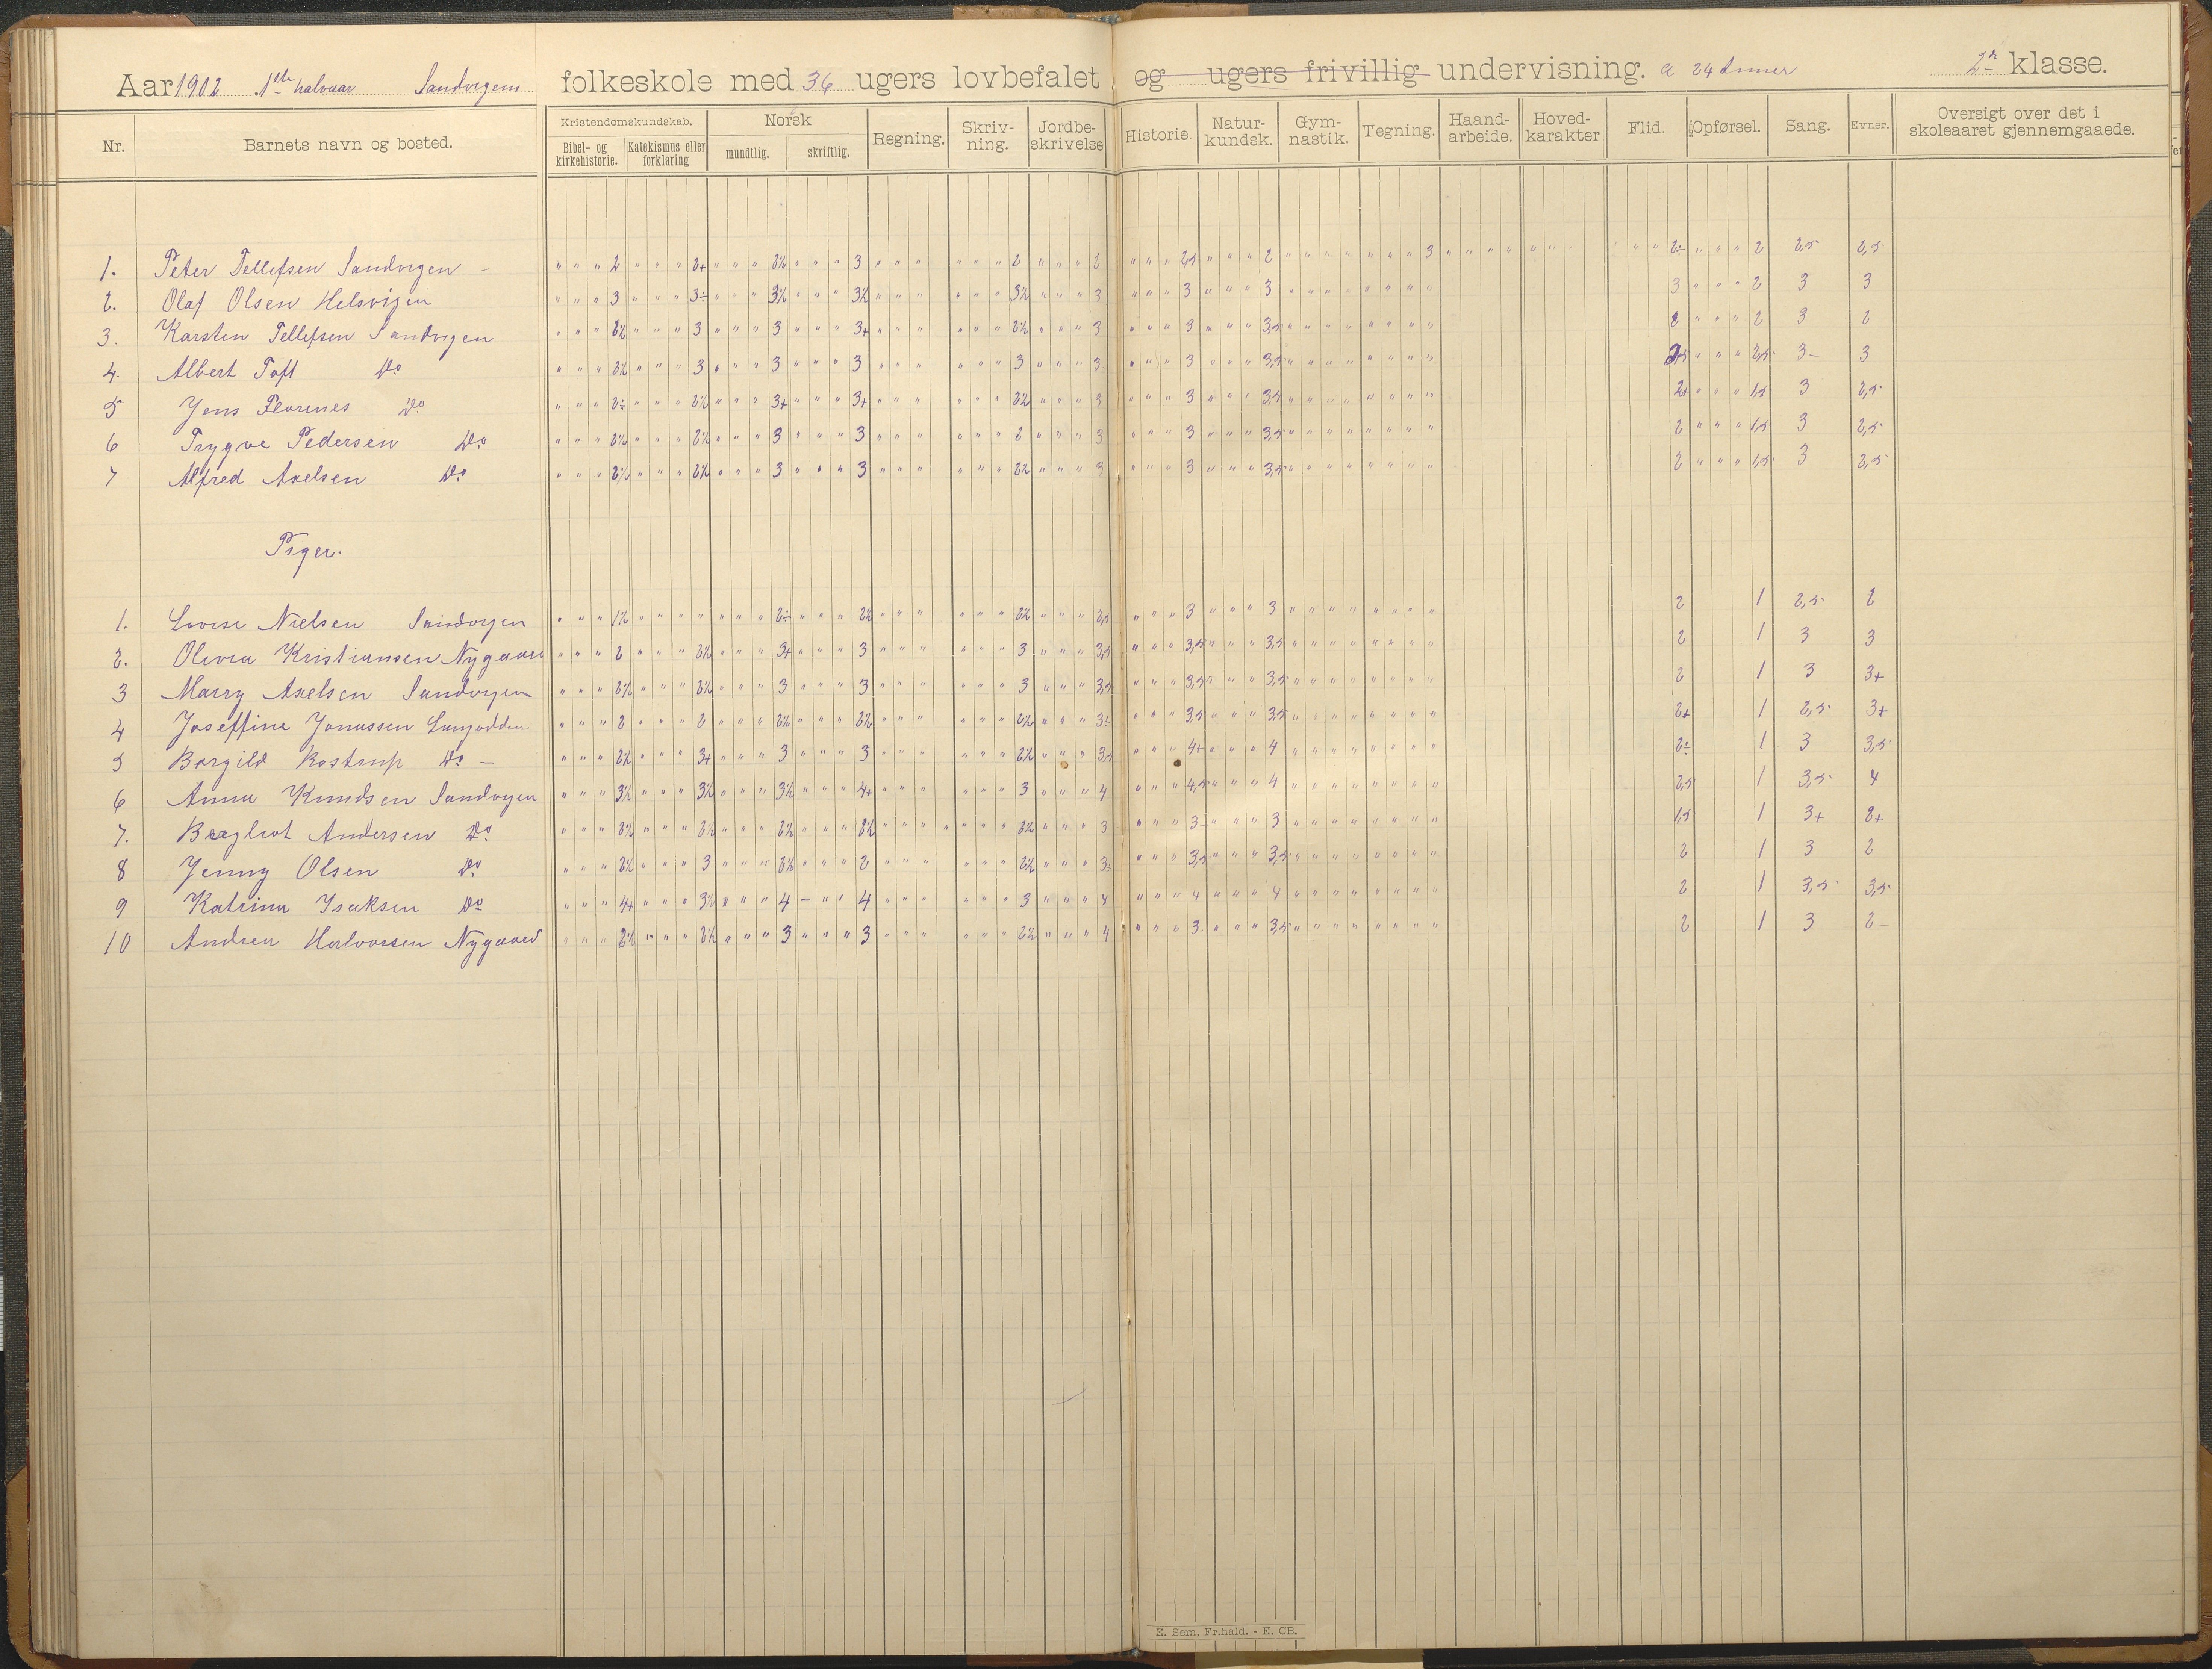 Aar 1902 1ste halvaar Sandvigens folkeskole med 36 ugers lovbefalet og ugers frivillig undervisning. a 24 timer 2n klasse.
Nr. Barnets navn og bosted. Kristendomskundskab. Norsk Regning. Skriv-ning. Jordbe-skrivelse Historie. Natur-kundsk. Gym-nastik. Tegning. Haand-arbeide. Hoved-karakter Flid. Opførsel. Sang. Evner. Oversigt over det i skoleaaret gjennemgaaede.
Bibel- og kirkehistorie. Katekismus eller forklaring mundtlig. skriftlig.
1. Peter Tellefsen Sandvigen – 2 2+ 2½ 3 2 2 2,5 2 3 2÷ 2 2,5 2,5
2. Olaf Olsen Helsvigen 3 3÷ 3½ 3½ 3½ 3 3 3 3 2 3 3
3. Karsten Tellefsen Sandvigen 2½ 3 3 3+ 2½ 3 3 3,5 2 2 3 2
4. Albert Toft Do 2½ 3 3 3 3 3 3 3,5 2,5 3– 3
5 Jens Florenes Do 2÷ 2½ 3+ 3+ 2½ 3 3 3,5 2+ 1,5 3 2,5
6 Trygve Pedersen Do 2½ 2½ 3 3 2 3 3 3,5 2 1,5 3 2,5
7 Alfred Axelsen Do 2½ 2½ 3 3 2½ 3 3 3,5 2 1,5 3 2,5
Piger.
1. Lovise Nielsen Sandvigen 1½ 2÷ 2½ 2½ 2,5 3 3 2 1 2,5 2
2. Olivia Kristiansen Nygaard 2 2½ 3+ 3 3 3,5 3,5 3,5 2 1 3 3
3 Marry Axelsen Sandvigen 2½ 2½ 3 3 3 3,5 3,5 3,5 2 1 3 3+
4 Joseffine Jonassen Langodden 2 2 2½ 2½ 2½ 3÷ 3,5 3,5 2+ 1 2,5 3+
5 Borgild Rostrup Do – 2½ 3+ 3 3 2½ 3,5 4+ 4 2÷ 1 3 3,5
6 Anna Knudsen Sandvigen 3½ 3½ 3½ 4+ 3 4 4,5 4 2,5 1 3,5 4
7. Bergliot Andersen Do 2½ 2½ 2½ 2½ 2½ 3 3– 3 1,5 1 3+ 2+
8 Jenny Olsen Do 2½ 3 2½ 2 2½ 3÷ 3,5 3,5 2 1 3 2
9 Katrina Isaksen Do 4+ 3½ 4 – 4 3 4 4 4 2 1 3,5 3,5
10 Andrea Halvorsen Nygaard 2½ 2½ 3 3 2½ 4 3 3,5 2 1 3 2–
E. Sem, Fr.hald. - E. CB.